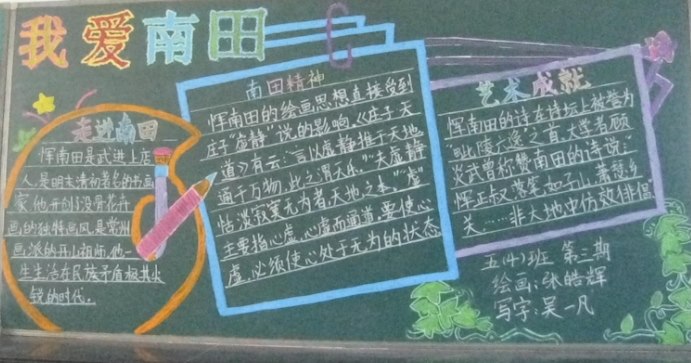 我爱南田
走进南田
恽南田是武进上店
人,是明末清初著名的书画
家,他开创了没骨花卉
画的独特画风,是常州
画派的开山祖师。他一
生生活在民族矛盾极其尖
锐的时代。
南田精神
恽南田的绘画思想直接受到
庄子“虚静”说的影响。《庄子·天
道》有云:“言以虚静推于天地,
通于万物,此之谓天乐。”“夫虚静
恬淡寂寞无为者,天地之本。”“虚”
主要指心虚,心虚而通道,要使心
虚,必须使心处于无为的状态
艺术成就
恽南田的诗在诗坛上被誉为
“毗陵六逸”之首。大学者顾
炎武曾称赞南田的诗说:“
恽正叔落笔如子山萧瑟,乡
关……非天地中仿效徘徊
五(4)班 第三期
绘画:张皓辉
写字:吴一凡